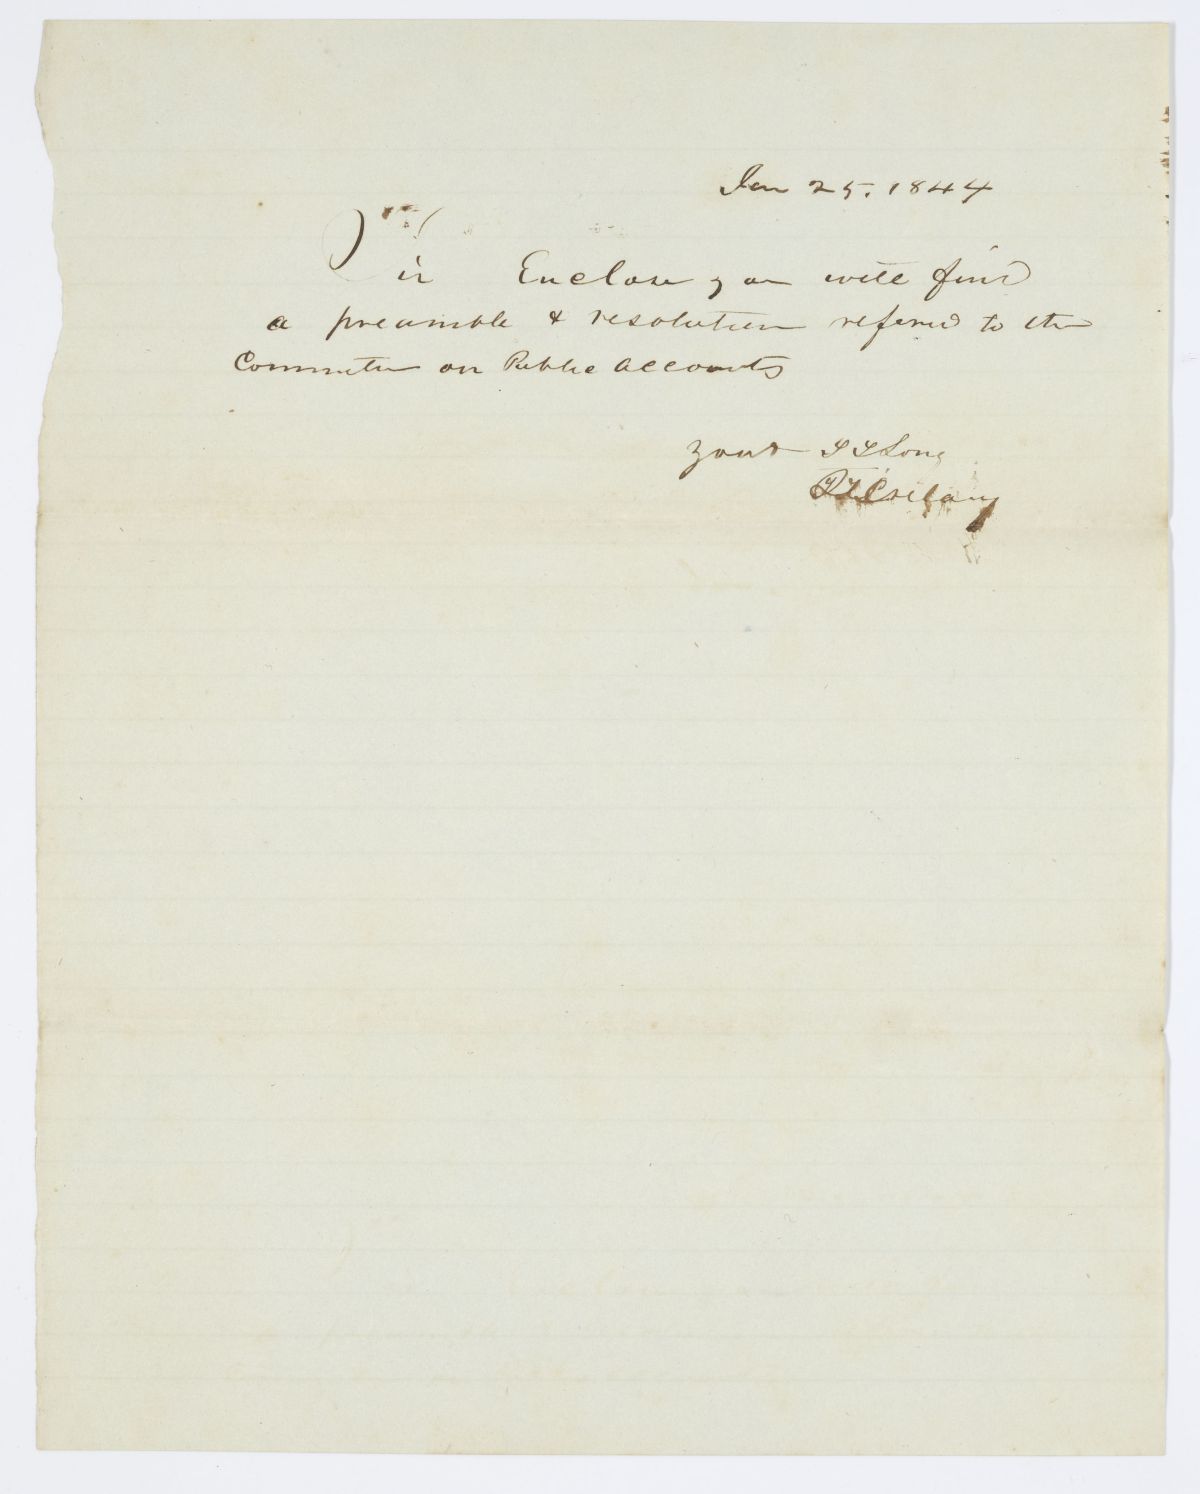 Jan 25. 1844
Sir Enclose you will find
a preamble & resolution refered to the
Committee on Public Accounts
Yours Long